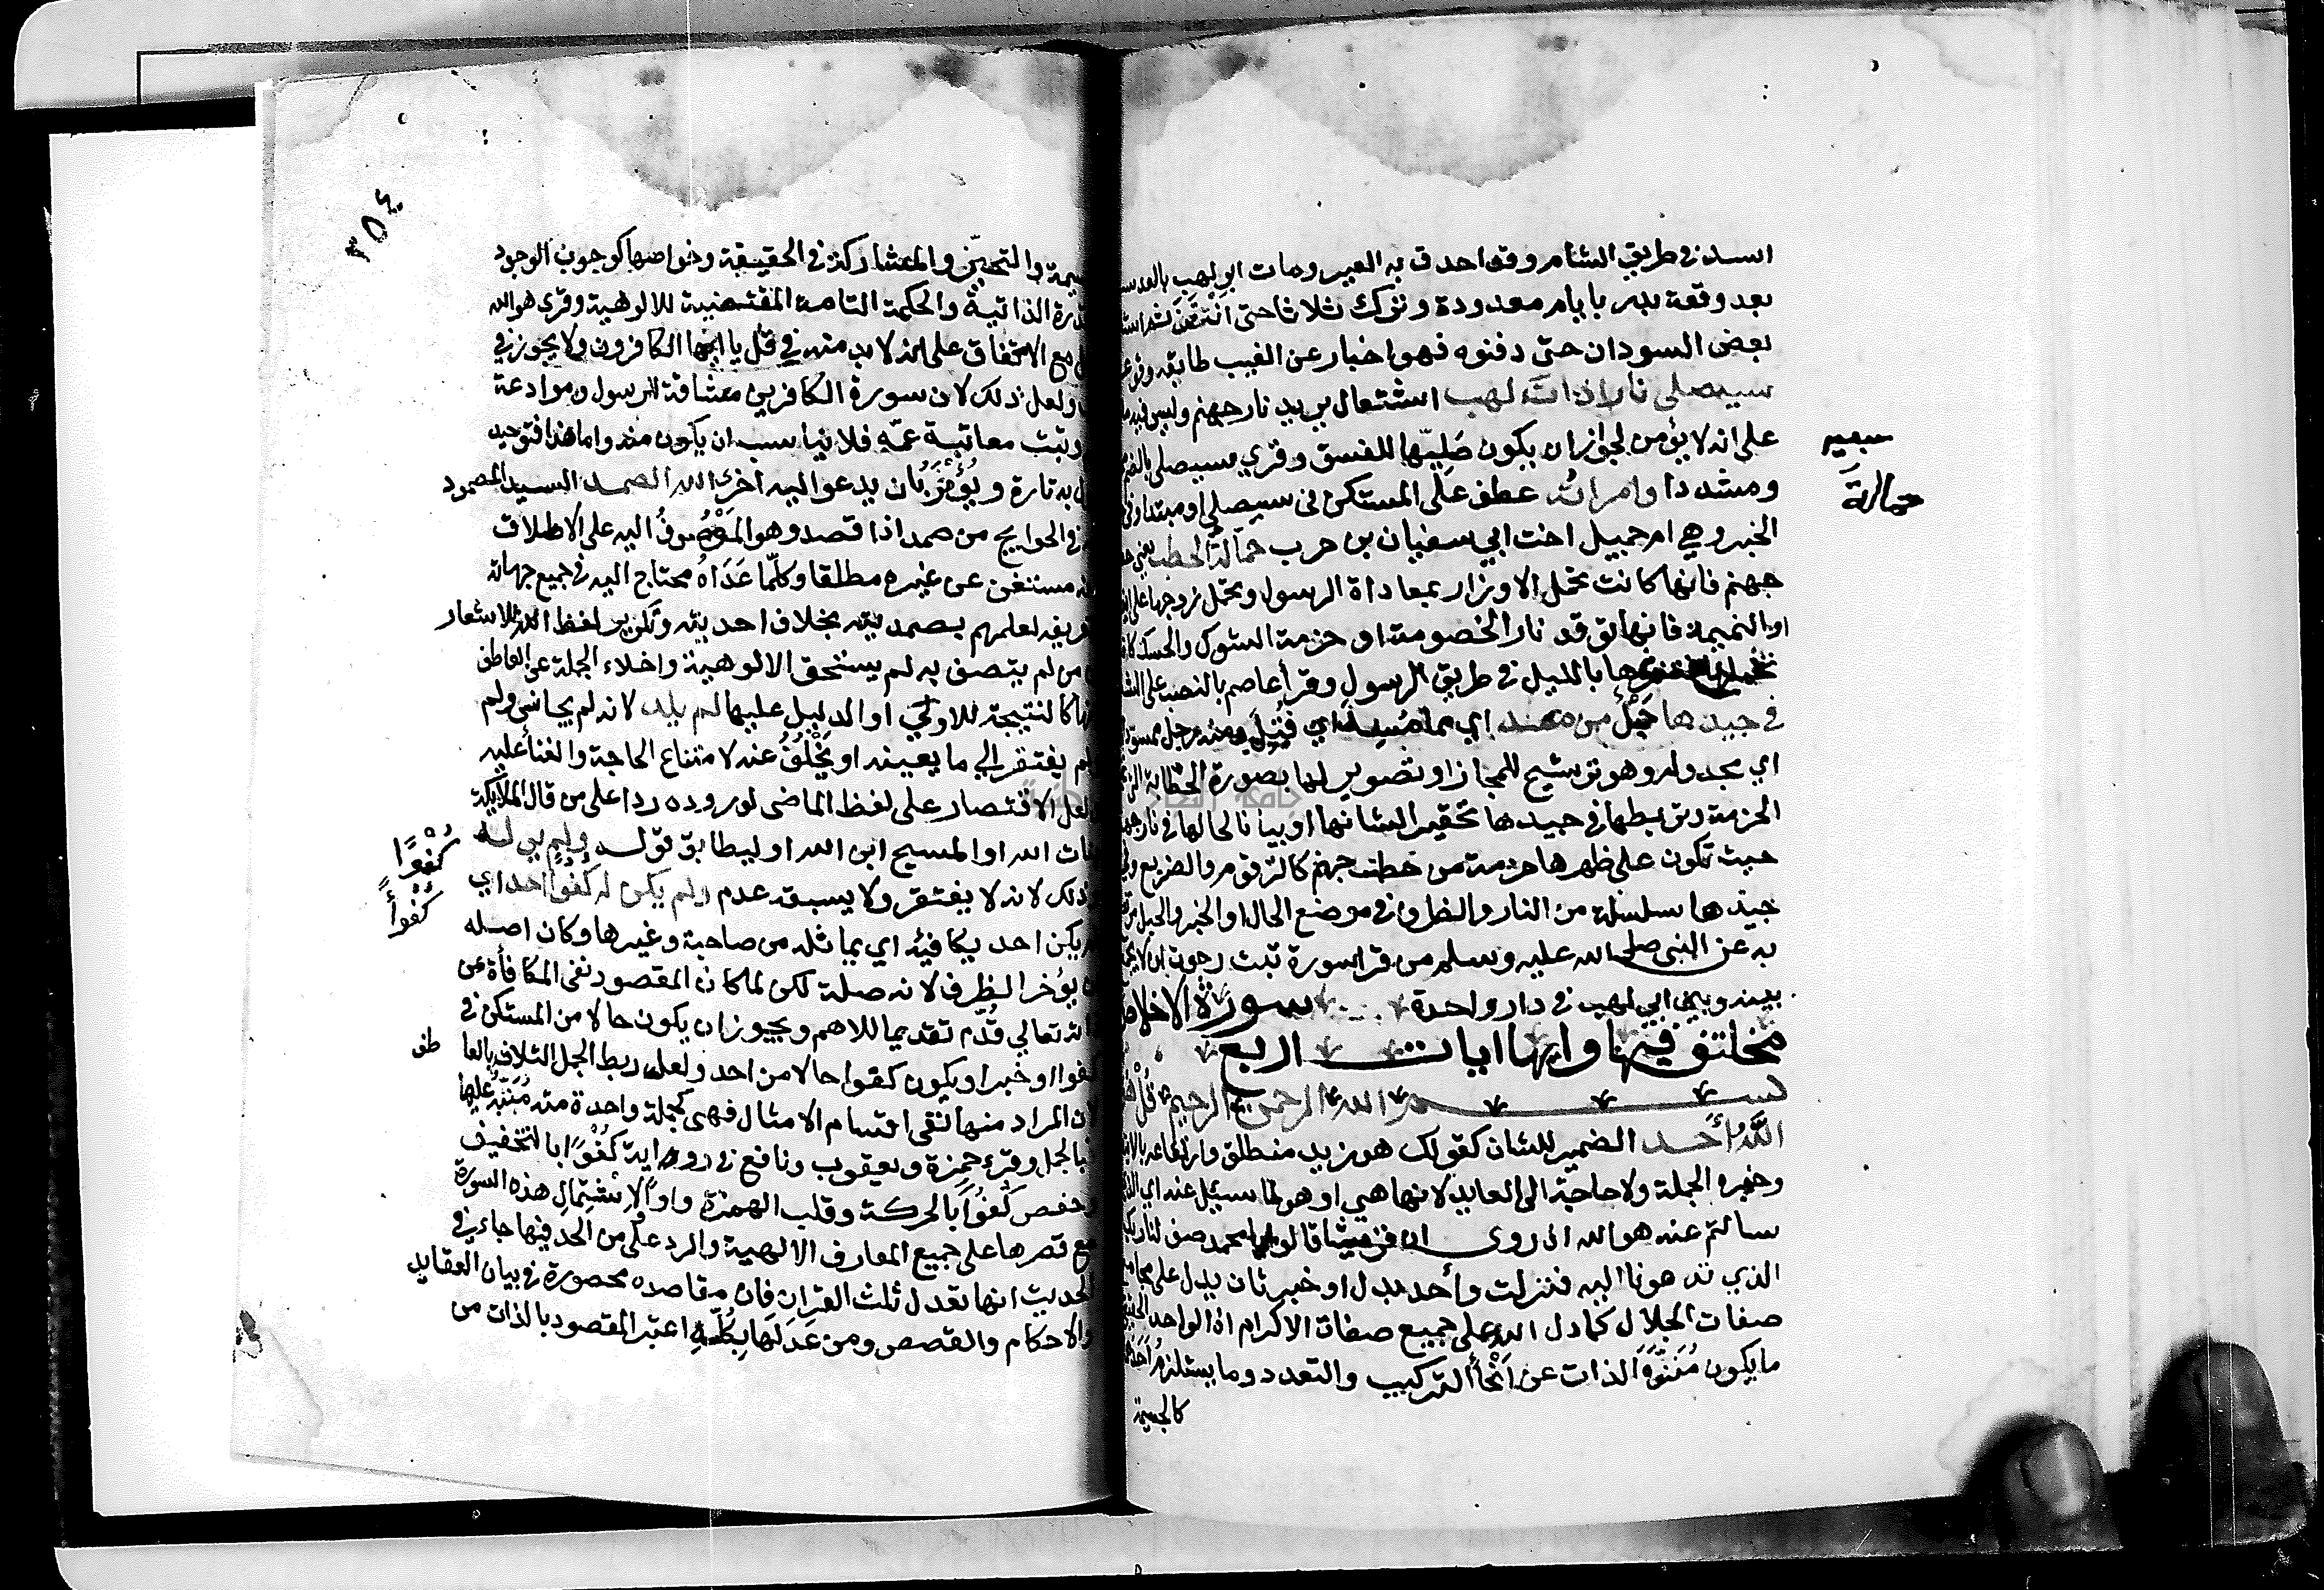 الاسد في طريق الشام وقد احدق به العير ومات ابو لهب بالعدسة
بعد وقعة بدر بايام معدودة وترك ثلاثا حتى انتن ثم استأ
بعض السودان حتى دفنوه فهو اخبار عن الغيب طابقه وقوعه
سيصلى نارا ذات لهب اشتعال يريد نار جهنم وليس فيه ما
على انه لا يؤمن لجواز ان يكون صليها للفسق وقري سيصلى بالضم
ومشددا وامراته عطف على المستكن في سيصلى او مبتدا وفي
الخبر وهي ام جميل اخت ابي سفيان بن حرب حمالة الحطب يعني حطب
جهنم فانها كانت تحمل الاوزار بمعاداة الرسول وتحمل زوجها على ايذ
او النميمة فانها توقد نار الخصومة او حزمة الشوك والحسك كانت
تحملها فتنثرها بالليل في طريق الرسول وقرأ عاصم بالنصب على الشتم
في جيدها حبل من مسد اي مما مسد اي فتل ومنه رجل ممسود
اي مجدوله وهو ترشيح للمجاز او تصوير لها بصورة الحطابة التي
الحزمة وتربطها في جيدها تحقيرا لشانها او بيانا لحالها في نار جهنم
حيث تكون على ظهرها حزمة من حطب جهنم كالزقوم والضريع وفي
جيدها سلسلة من النار والظرف في موضع الحال او الخبر والحبل مرتفع
به عن النبي صلى الله عليه وسلم من قرا سورة تبت رجوت ان لا يجمع
بينه وبين ابي لهب في دار واحدة سورة الاخلاص
مختلف فيها وايها ايات اربع
بسم الله الرحمن الرحيم قل هو
الله احد الضمير للشان كقولك هو زيد منطلق وارتفاعه بالابتدا
وخبره الجملة ولا حاجة الى العايد لانها هي او هو لما سيل عنه اي الذي
سالتم عنه هو الله اذ روى ان قريشا قالوا يا محمد صف لنا ربك
الذي تدعونا اليه فنزلت وأحد بدل او خبر ثان يدل على مجامع
صفات الجلال كما دل الله على جميع صفات الاكرام اذ الواحد الحقيقي
ما يكون منزه الذات عن انحأ التركيب والتعدد وما يستلزم احدهما
كالجسمية
سعير
حمالة
٣٥٤
سيمة والتحيّز والمشاركة في الحقيقة وخواصها كوجوب الوجود
قدرة الذاتية والحكمة التامة المقتضية للالوهية وقرى هو الله
مع الاتفاق على انه لا بد منه في قل يا ايها الكافرون ولا يجوز في
ولعل ذلك لان سورة الكافرين مشاقة الرسول وموادعة
وتبت معاتبة عمّه فلا يناسب ان يكون منه واما هذا فتوحيد
به تارة ويؤمر بان يدعو اليه اخرى الله الصمد السيد المصمود
في الحوايج من صمد اذا قصد وهو الموصوف اليه على الاطلاق
نه مستغن عن غيره مطلقا وكلما عداه محتاج اليه في جميع جهاته
تعريفه لعلمهم بصمديته بخلاف احديته وتكرير لفظ الله للاشعار
من لم يتصف به لم يستحق الالوهية واخلاء الجملة عن العاطف
نها كالنتيجة للاولى او الدليل عليها لم يلد لانه لم يجانس ولم
لم يفتقر الى ما يعينه او يخلف عنه لامتناع الحاجة والفنأ عليه
لعل الاقتصار على لفظ الماضي لوروده ردا على من قال الملايكة
بنات الله او المسيح ابن الله او ليطابق قوله ولم يولد
وذلك لانه لا يفتقر ولا يسبقه عدم ولم يكن له كفوا احد اي
لم يكن احد يكافيه اي يماثله من صاحبة وغيرها وكان اصله
ان يؤخر الظرف لانه صلة لكن لما كان المقصود نفي المكافأة عن
ذاته تعالى قدّم تقديما للاهم ويجوز ان يكون حالا من المستكن في
كفوا او خبرا ويكون كفوا حالا من احد ولعل ربط الجمل الثلاث بالعا طف
لان المراد منها نفي اقسام الامثال فهي كجملة واحدة منه منبّه عليها
بالجمل وقرى حمزة ويعقوب ونافع في رواية كفوا بالتخفيف
وحفص كفوا بالحركة وقلب الهمزة واوا ولاشتمال هذه السورة
مع قصرها على جميع المعارف الالهية والرد على من الحد فيها جاء في
الحديث انها تعدل ثلث القران فان مقاصده محصورة في بيان العقايد
والاحكام والقصص ومن عدلها بكلّه اعتبر المقصود بالذات من
كفوا
كفوأ